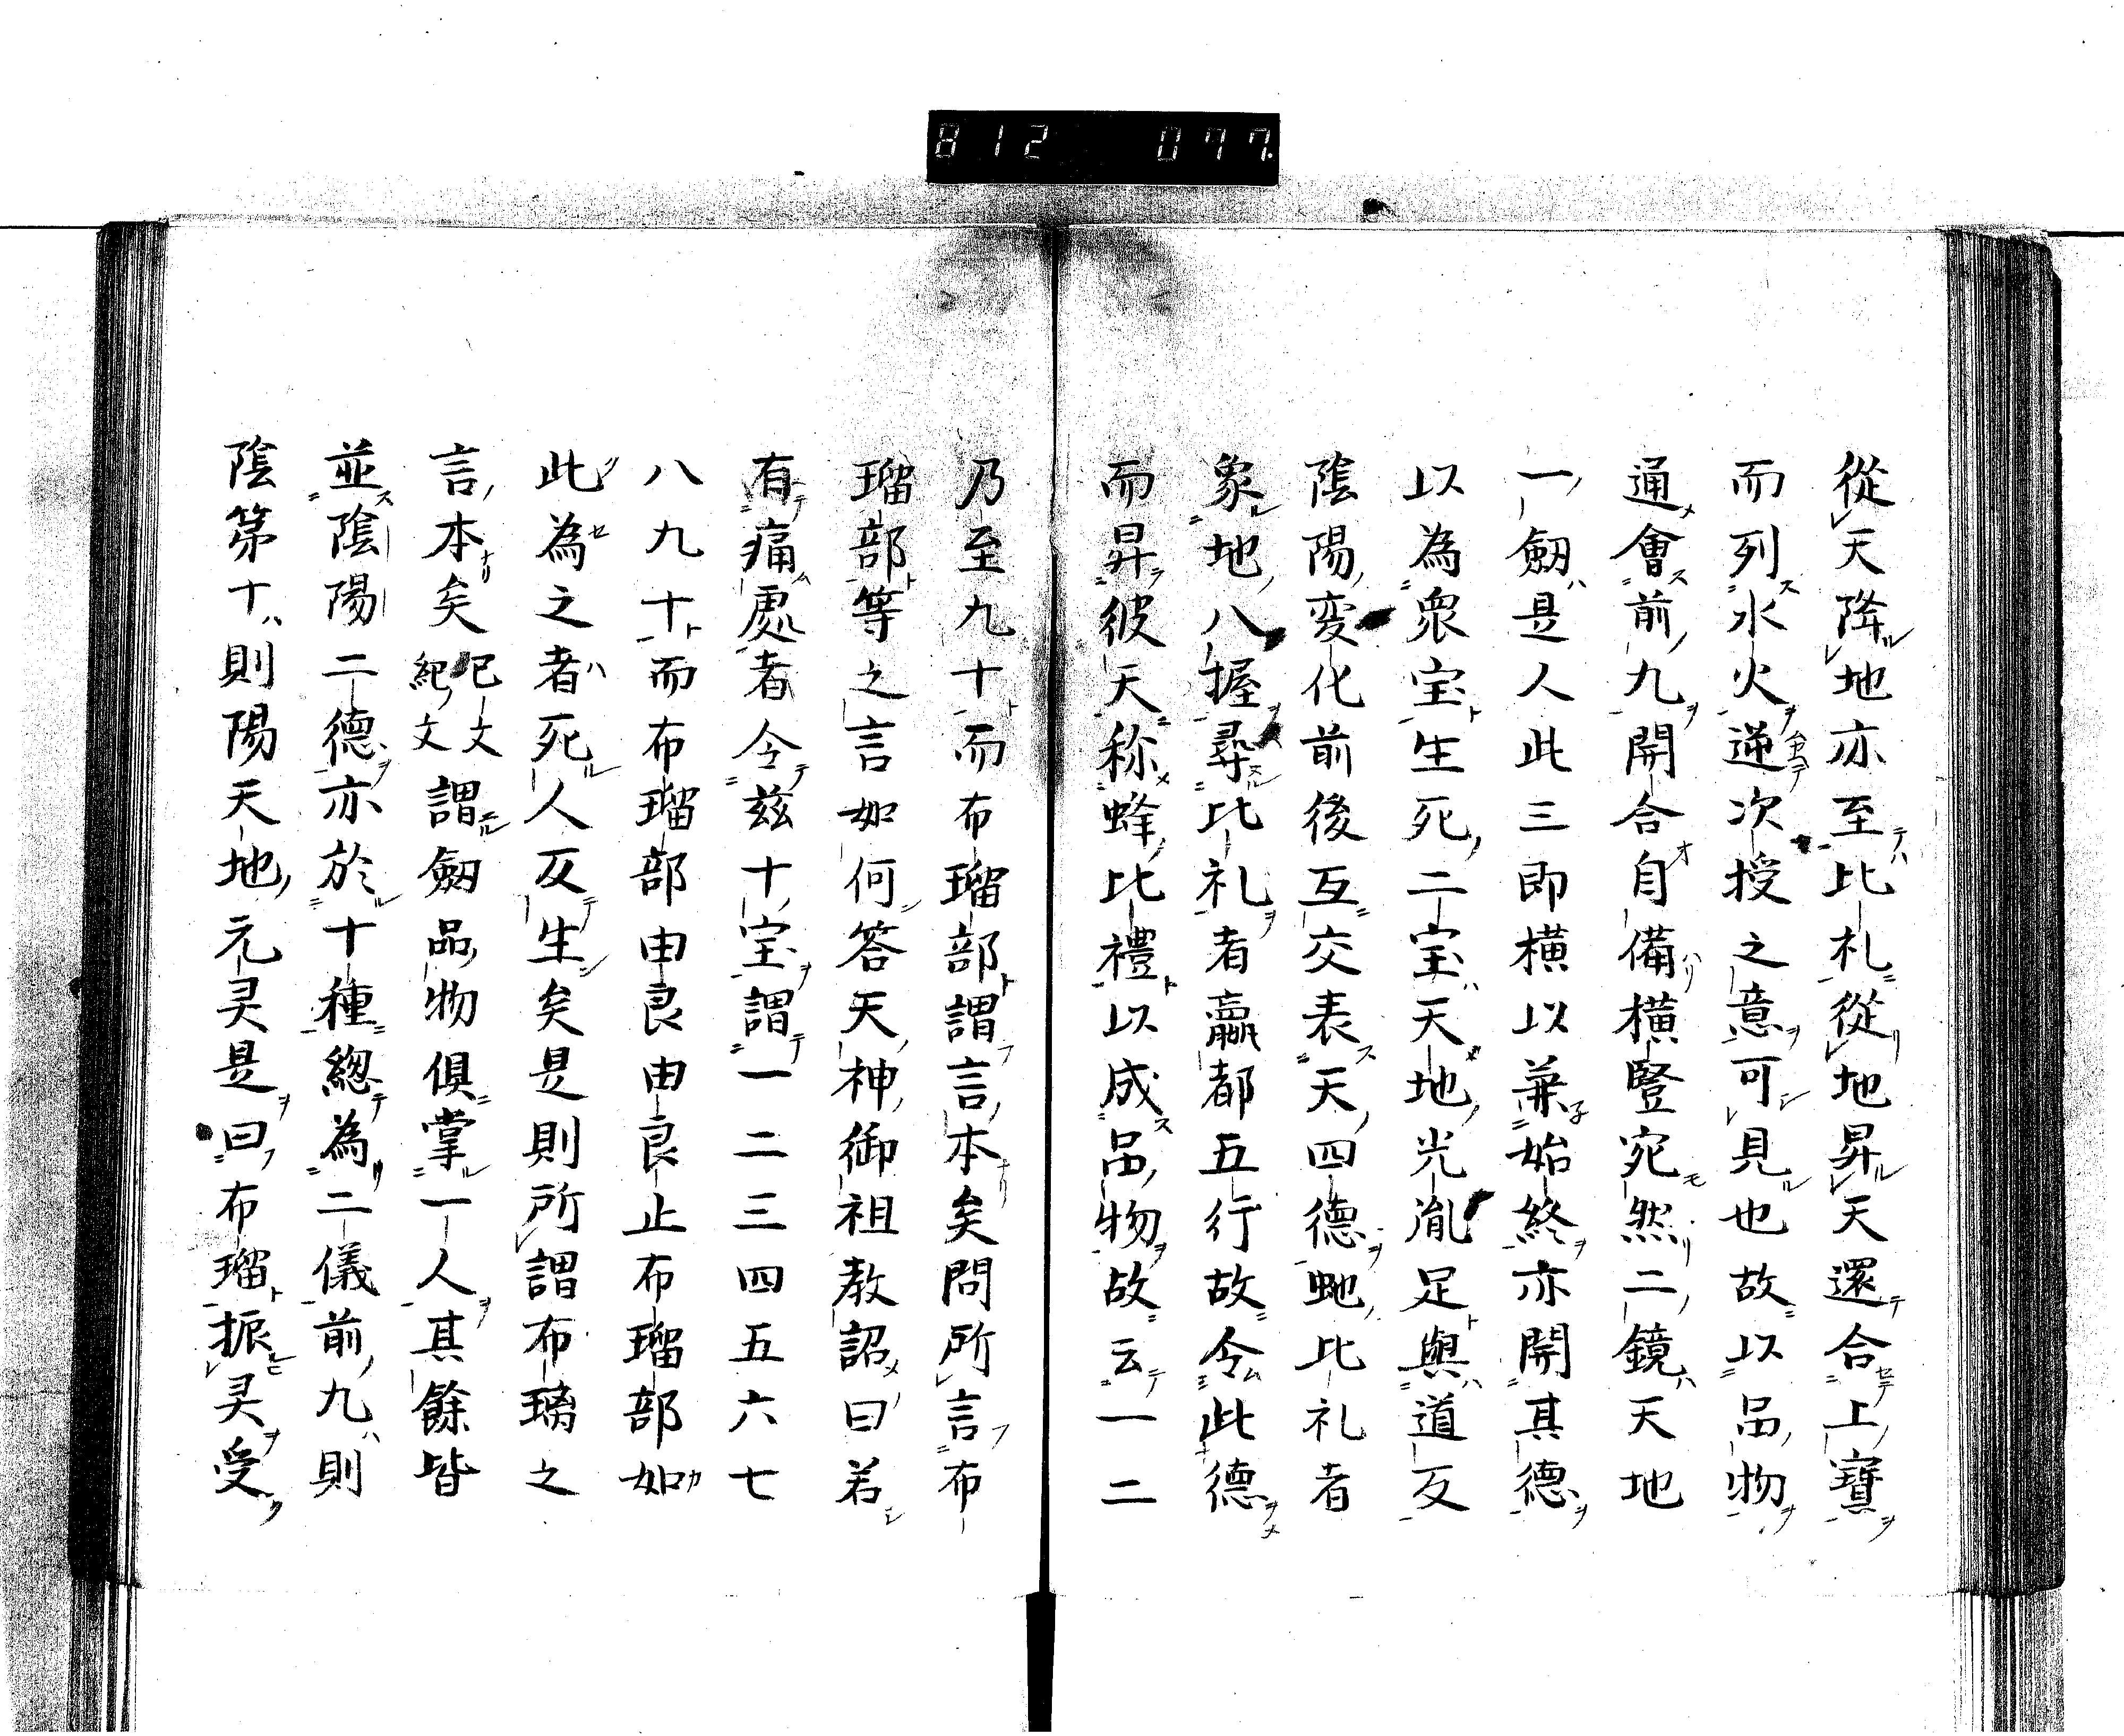 812 077
從天降地亦至比礼從地昇天還合上寶
而列水火逆次授之意可見也故以品物
通會前九開合自備横竪宛然二鏡天地
一劔是人此三即横以兼始終亦開其德
以為衆宝生死二宝天地光胤足與道反
陰陽変化前後互交表天四德虵比礼者
象地八握尋比礼者羸都五行故令此德
而昇彼天称蜂比禮以成品物故云一二
乃至九十而布瑠部謂言本矣問所言布
瑠部等之言如何答天神御祖教詔曰若
有痛處者令茲十宝謂一二三四五六七
八九十而布瑠部由良由良止布瑠部如
此為之者死人反生矣是則所謂布璃之
言本矣已文紀文謂劔品物俱掌一人其餘皆
並陰陽二德亦於十種總為二儀前九則
陰第十則陽天地元灵是曰布瑠振灵受